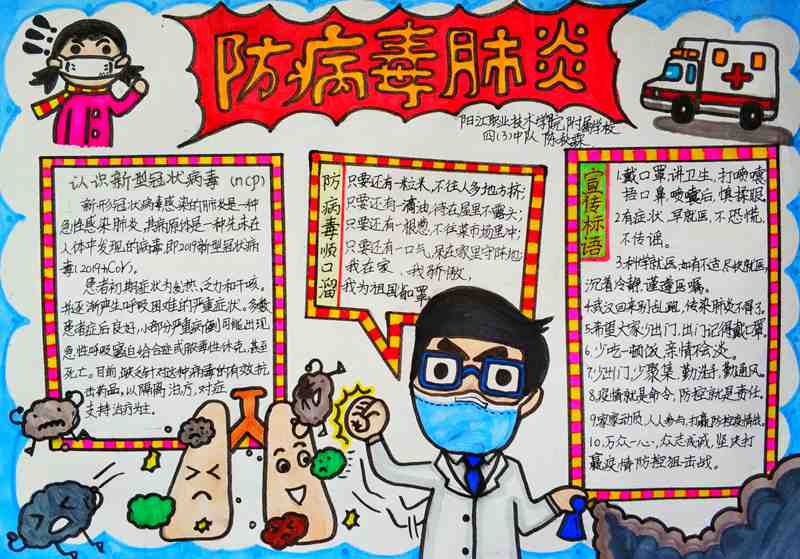 防病毒肺炎
阳江职业技术学院附属学校
四(3)中队 陈秋霖
认识新型冠状病毒 (ncp)
新形冠状病毒感染的肺炎是一种
急性感染肺炎,其病原体是一种先未在
人体中发现的病毒,即2019新型冠状病
毒(2019-nCoV)。
患者初期症状为发热、乏力和干咳,
并逐渐产生呼吸困难的严重症状。多数
患者症后良好,部分严重病例可能出现
急性呼吸窘迫综合症或脓毒性休克,甚至
死亡。目前,缺乏针对这种病毒的有效抗
击药品,以隔离治疗、对症
支持治疗为主。
防病毒顺口溜
只要还有一粒米,不往人多地方挤;
只要还有一滴油,待在屋里不露头;
只要还有一根葱,不往菜市场里冲;
只要还有一口气,呆在家里守阵地;
我在家、我骄傲,
我为祖国和罩
宣传标语
1.戴口罩,讲卫生,打喷嚏
捂口鼻,喷嚏后,慎揉眼。
2.有症状,早就医,不恐慌,
不传谣。
3.科学就医,如有不适尽快就医,
沉着冷静,谨遵医嘱。
4.武汉回来别乱跑,传染肺炎不得了。
5.希望大家少出门,出门记得戴口罩。
6.少吃一顿饭,亲情不会淡。
7.少出门,少聚集,勤洗手,勤通风。
8.疫情就是命令,防控就是责任。
9.家家动员,人人参与,打赢防控疫情战。
10.万众一心,众志成诚,坚决打
赢疫情防控狙击战。